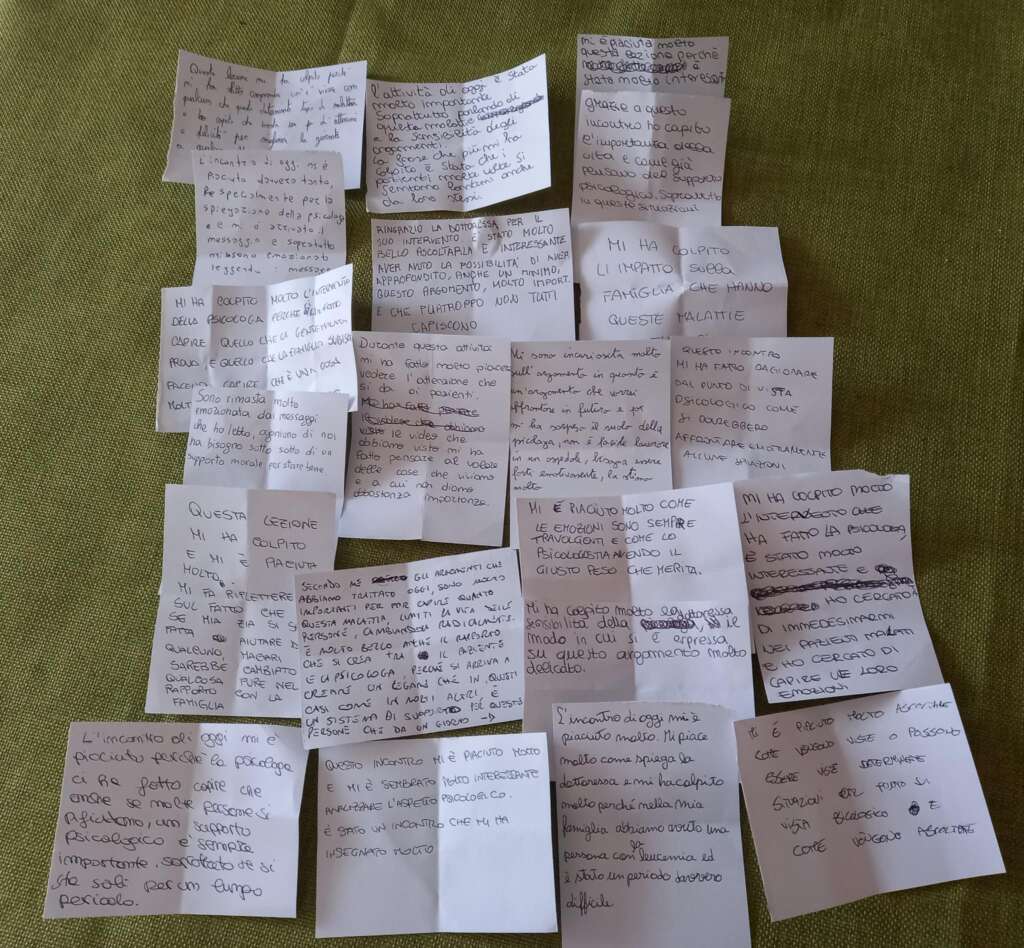 Questa lezione mi ha colpito perché
mi ha fatto comprendere com'è vivere con
qualcuno che
e ho capito che
e delicatezza per
a qualcuno
l'attività di oggi è stata
molto importante
soprattutto parlando di
queste malattie
e la sensibilità degli
argomenti.
La frase che più mi ha
colpito è stata che i
pazienti molte volte si
sentono lontani anche
da loro stessi
mi è paciuta molto
questa lezione perchè
è
stato molto interessan
grazie a questo
incontro ho capito
l'importanza della
vita e come già
pensavo del supporto
psicologico soprattutto
in queste situazioni
L'incontro di oggi mi è
piaciuto davvero tanto,
specialmente per la
spiegazione della psicologa
e mi è arrivato il
messaggio e soprattutto
mi sono emozionata
leggendo i messaggi
RINGRAZIO LA DOTTORESSA PER IL
SUO INTERVENTO È STATO MOLTO
BELLO ASCOLTARLA E INTERESSANTE
AVER AVUTO LA POSSIBILITÀ DI AVER
APPROFONDITO, ANCHE UN MINIMO,
QUESTO ARGOMENTO, MOLTO IMPORT.
E CHE PURTROPPO NON TUTTI
CAPISCONO
MI HA COLPITO
LI IMPATTO SULLA
FAMIGLIA CHE HANNO
QUESTE MALATTIE
MI HA COLPITO MOLTO L'INTERVENTO
DELLA PSICOLOGA PERCHÈ FATTO
CAPIRE QUELLO CHE LA GENTE MALATA
PROVA E QUELLO CHE LA FAMIGLIA SUBISCE
FACENDO CAPIRE CHE È UNA COSA
MOLT
Durante questa attività
mi ha fatto molto piacere
vedere l'attenzione che
si da ai pazienti.
Me ha fatto piacere
vedere che abbiamo
visto le video che
abbiamo visto mi ha
fatto pensare al valore
delle cose che viviamo
e a cui non diamo
abbastanza importanza.
Mi sono incuriosita molto
sull'argomento in quanto è
un'argomento che vorrei
affrontare in futuro e poi
mi ha sorpreso il ruolo della
psicologa, non è facile lavorare
in un ospedale, bisogna essere
forte emotivamente, la stimo
molto
QUESTO INCONTRO
MI HA FATTO RAGIONARE
DAL PUNTO DI VISTA
PSICOLOGICO COME
SI DOVREBBERO
AFFRONTARE EMOTIVAMENTE
ALCUNE SITUAZIONI
Sono rimasta molto
emozionata dai messaggi
che ho letto, ognuno di noi
ha bisogno sotto sotto di un
supporto morale per stare bene
QUESTA LEZIONE
MI HA COLPITO
E MI È PIACIUTA
MOLTO.
MI FA RIFLETTERE
SUL FATTO CHE
SE MIA ZIA SI
FATTA AIUTARE DA
QUALCUNO, MAGARI
SAREBBE CAMBIATO
QUALCOSA PURE NEL
RAPPORTO CON LA
FAMIGLIA
SECONDO ME GLI ARGOMENTI CHE
ABBIAMO TRATTATO OGGI, SONO MOLTO
IMPORTANTI PER FAR CAPIRE QUANTO
QUESTA MALATTIA, LIMITI LA VITA DELLE
PERSONE, CAMBIANDOLA RADICALMENTE.
È MOLTO BELLO ANCHE IL RAPPORTO
CHE SI CREA TRA IL PAZIENTE
E LA PSICOLOGA, PERCHÉ SI ARRIVA A
CREARE UN LEGAME CHE IN QUESTI
CASI COME IN MOLTI ALTRI, È
UN SISTEMA DI SUPPORTO PER QUESTE
PERSONE CHE DA UN GIORNO →
MI È PIACIUTO MOLTO COME
LE EMOZIONI SONO SEMPRE
TRAVOLGENTI E COME LO
PSICOLOGO STIA AVENDO IL
GIUSTO PESO CHE MERITA.
Mi ha colpito molto la
sensibilità della dottoressa, il
modo in cui si è espressa
su questo argomento molto
delicato.
MI HA COLPITO MOLTO
L'INTERVENTO CHE
HA FATTO LA PSICOLOGA,
È STATO MOLTO
INTERESSANTE E
HO CERCATO
DI IMMEDESIMARMI
NEI PAZIENTI MALATI
E HO CERCATO DI
CAPIRE LE LORO
EMOZIONI
L'incontro di oggi mi è
piaciuto perché la psicologa
ci ha fatto capire che
anche se molte persone si
rifiutano, un supporto
psicologico è sempre
importante, soprattutto se si
sta soli per un lungo
periodo.
QUESTO INCONTRO MI È PIACIUTO MOLTO
E MI È SEMBRATO MOLTO INTERESSANTE
ANALIZZARE L'ASPETTO PSICOLOGICO.
È STATO UN INCONTRO CHE MI HA
INSEGNATO MOLTO
L'incontro di oggi mi è
piaciuto molto. Mi piace
molto come spiega la
dottoressa e mi ha colpito
molto perché nella mia
famiglia abbiamo avuto una
persona con la leucemia ed
è stato un periodo davvero
difficile
MI È PIACIUTO MOLTO ASCOLTARE
COME VENGONO VISTE O POSSONO
ESSERE VISTE DETERMINATE
SITUAZIONI DAL PUNTO DI
VISTA PSICOLOGICO E
COME VENGONO AFFRONTATE